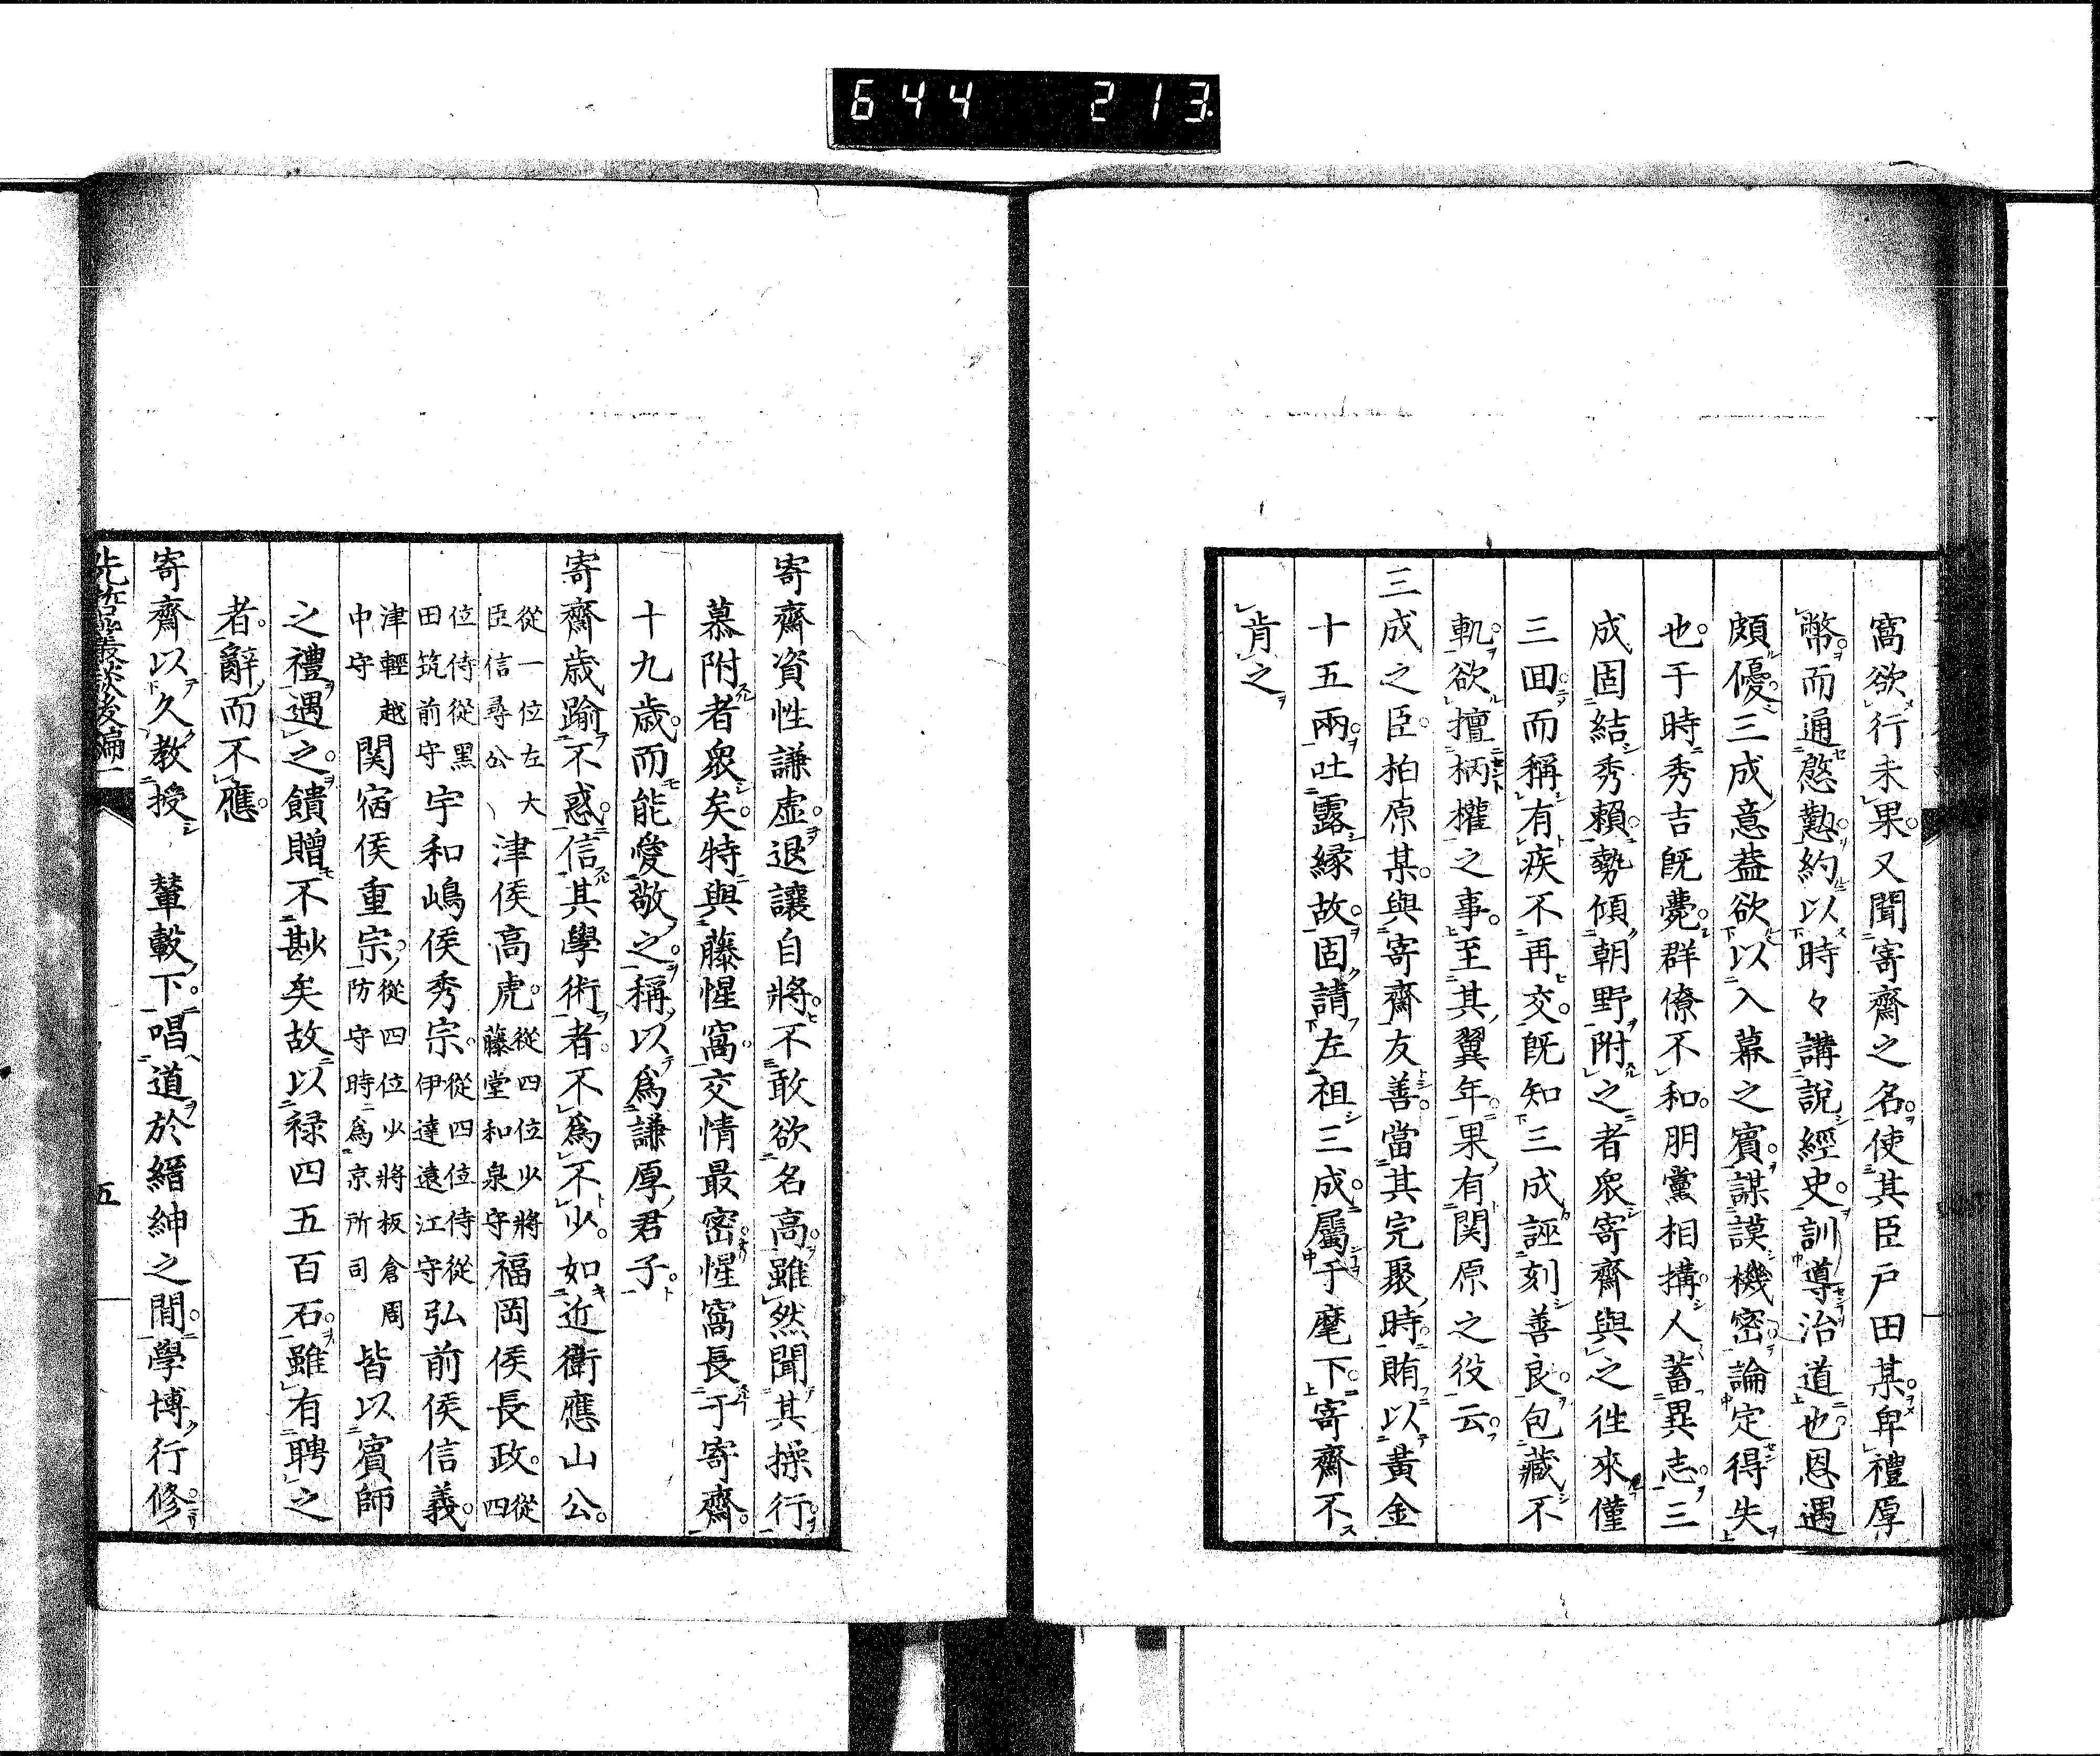 644 213
窩欲行未果又聞寄齋之名使其臣戸田某卑禮厚
幣而通慇懃約以時々講說經史訓導治道也恩遇
頗優三成意蓋欲以入幕之賓謀謨機密論定得失
也于時秀吉既薨群僚不和朋黨相搆人蓄異志三
成固結秀賴勢傾朝野附之者衆寄齋與之徃來僅
三囬而稱有疾不再交既知三成誣刻善良包藏不
軌欲擅柄權之事至其翼年果有関原之役云
三成之臣柏原某與寄齋友善當其完聚時賄以黃金
十五兩吐露縁故固請左袒三成屬于麾下寄齋不
肯之
寄齋資性謙虛退讓自將不敢欲名高雖然聞其操行
慕附者衆矣特與藤惺窩交情最密惺窩長于寄齋
十九歲而能愛敬之稱以爲謙厚君子
寄齋歲踰不惑信其學術者不爲不少如近衞應山公
從一位左大臣信尋公津侯高虎從四位少將藤堂和泉守福岡侯長政從四
位侍從黑田筑前守宇和嶋侯秀宗從四位侍從伊達遠江守弘前侯信義
津輕越中守関宿侯重宗從四位少將板倉周防守時爲京所司皆以賓師
之禮遇之饋贈不尠矣故以禄四五百石雖有聘之
者辭而不應
寄齋以久教授輦轂下唱道於縉紳之間學博行修
先哲叢談後編一 五